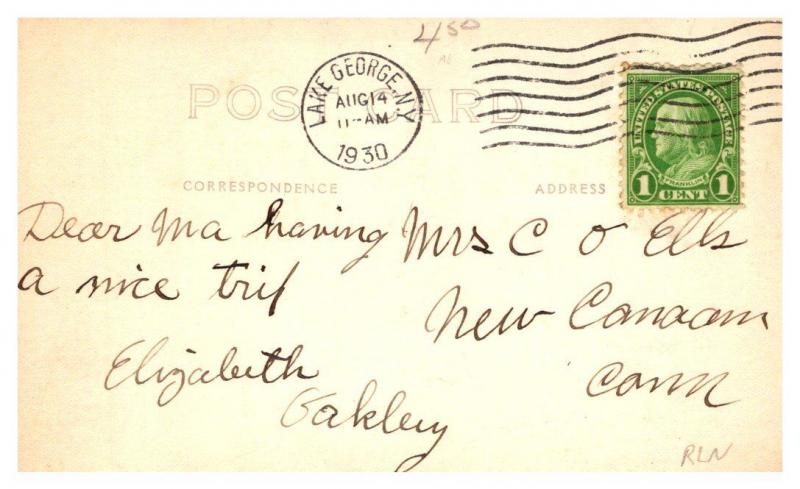 4 50
POST CARD
LAKE GEORGE, N.Y.
AUG 14
11-AM
1930
UNITED STATES POSTAGE
FRANKLIN
1 CENT 1
CORRESPONDENCE
ADDRESS
Dear Ma having
a nice trip
Elizabeth
Oakley
Mrs C O Ells
New Canaan
Conn
RLN